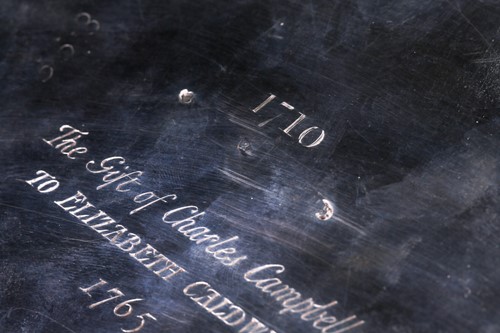 1710
The Gift of Charles Campbell
TO ELIZABETH
1765